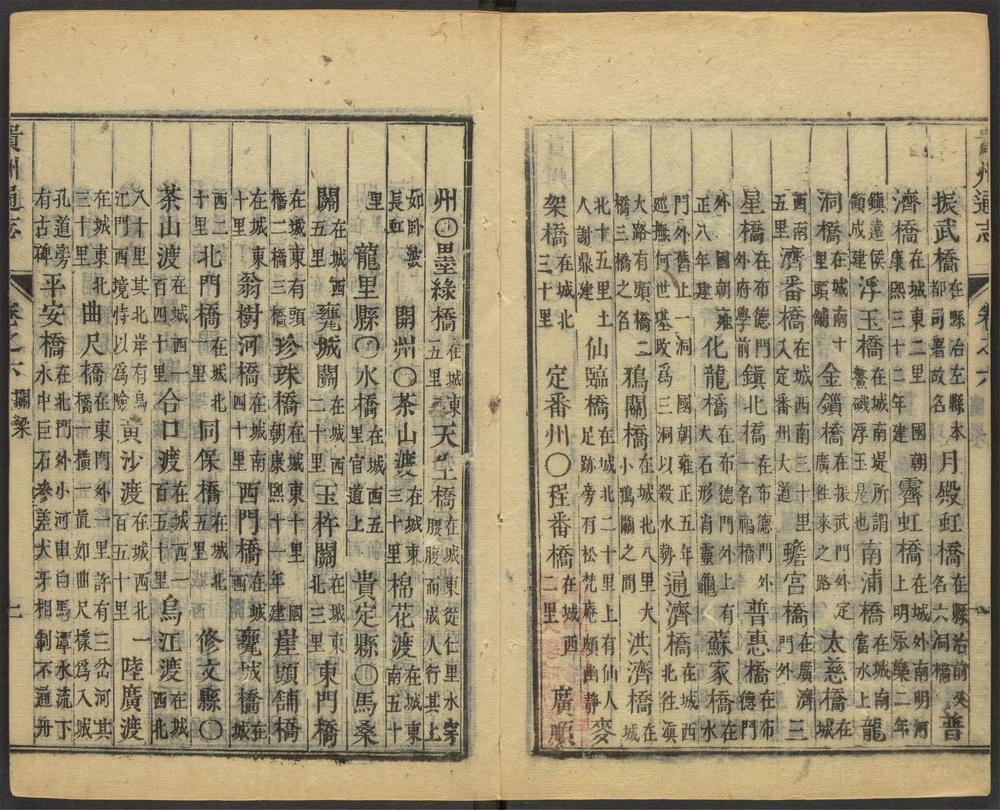 貴州通志 卷之六
振武橋在縣治左縣本都司署故名 月殿虹橋在縣治前又名六洞橋 普
濟橋在城東二里 國朝康熙三十二年建 霽虹橋在城外南明河上明永樂二年
鎮遠侯顧成建 浮玉橋在城南堤所謂鰲磯浮玉是也 南浦橋在城南富水上 龍
洞橋在城南十里頭鋪 金鎻橋在振武門外定廣往來之路 太慈橋在城
西南五里 濟番橋在城西南三十里入定番州大道 蟾宮橋在廣濟門外 三
星橋在布德門外府學前 鎮北橋在布德門外一名福橋 普惠橋在布德門
外 國朝雍正八年建 化龍橋在布德門外上有大石形肖靈龜 蘇家橋在水
門外舊止一洞 國朝雍正五年巡撫何世璂改爲三洞以殺水勢 通濟橋在城西北往滇
大路有頭橋二橋三橋之名 鴉關橋在城北八里大小鴉關之間 洪濟橋在城
北十五里土人謝鼎建 仙臨橋在城北二十里上有仙人足跡傍有松梵庵頗幽静 麥
架橋在城北三十里 定番州〇程番橋在城西二里 廣順
州〇墨綠橋在城東五里 天生橋在城東從仁里水穿腰腹而成人行其上
如卧波長虹 開州〇茶山渡在城三十里 棉花渡在城東南五十
里 龍里縣〇水橋在城西五里官道上 貴定縣〇馬桑
關在城西五里 甕城關在城西二十里 玉杵關在城東北三里 東門橋
在城東有頭橋二橋三橋 珍珠橋在城東十里 國朝康熙十一年建 崖頭舖橋
在城東十里 翁樹河橋在城南四十里 西門橋在城西 甕城橋在城
西二十里 北門橋在城北一里 同保橋在城北五里 修文縣〇
茶山渡在城西一百四十里 合口渡在城西一百五十里 烏江渡在城西北
八十里其北岸有烏江門西境恃以爲險 黃沙渡在城西北一百五十里 陸廣渡
在城東北三十里 曲尺橋在東門外一里許有三岔河其橋一橫一眞如曲尺樣爲入城
孔道旁有古碑 平安橋在北門外小河串白馬潭水流下水中巨石參差犬牙相制不通舟
貴州通志 卷之六 關梁